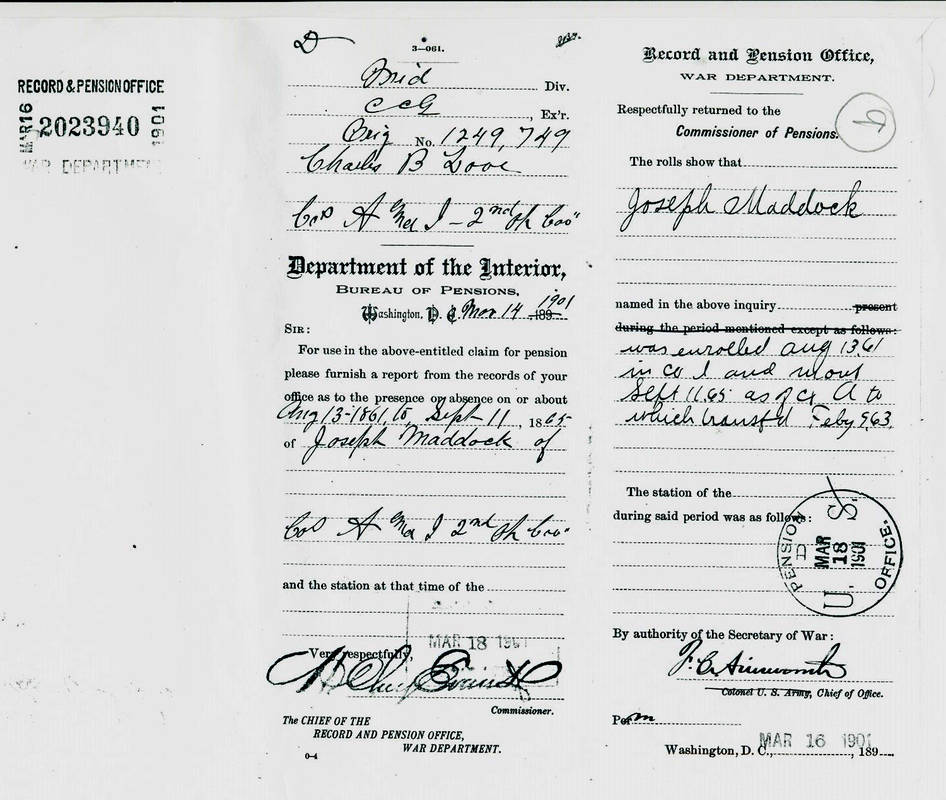 RECORD & PENSION OFFICE
MAR 16
2023940
1901
WAR DEPARTMENT
3—061.
Mid Div.
CCG, Ex'r.
Orig No. 1249,749
Charles B Love
Cos A and I - 2nd Oh Cav
Department of the Interior,
BUREAU OF PENSIONS,
Washington, D. C. Mar 14 1901 189
SIR:
For use in the above-entitled claim for pension
please furnish a report from the records of your
office as to the presence or absence on or about
Aug 13-1861, to Sept 11, 1865
of Joseph Maddock of
Cos A and I 2nd Oh Cav
and the station at that time of the
MAR 18 1901
Very respectfully,
H Clay Evans
Commissioner.
The CHIEF OF THE
RECORD AND PENSION OFFICE,
WAR DEPARTMENT.
0-4
Record and Pension Office,
WAR DEPARTMENT.
Respectfully returned to the
Commissioner of Pensions.
The rolls show that
Joseph Maddock
named in the above inquiry present
during the period mentioned except as follows:
was enrolled Aug 13,61
in Co I and mout
Sept 11,65 as of Co A to
which transfd Feby 9,63.
The station of the
during said period was as follows:
U. S.
PENSION OFFICE.
MAR
18
1901
By authority of the Secretary of War:
F. C. Ainsworth
Colonel U. S. Army, Chief of Office.
Per m
Washington, D. C., MAR 16 1901, 189